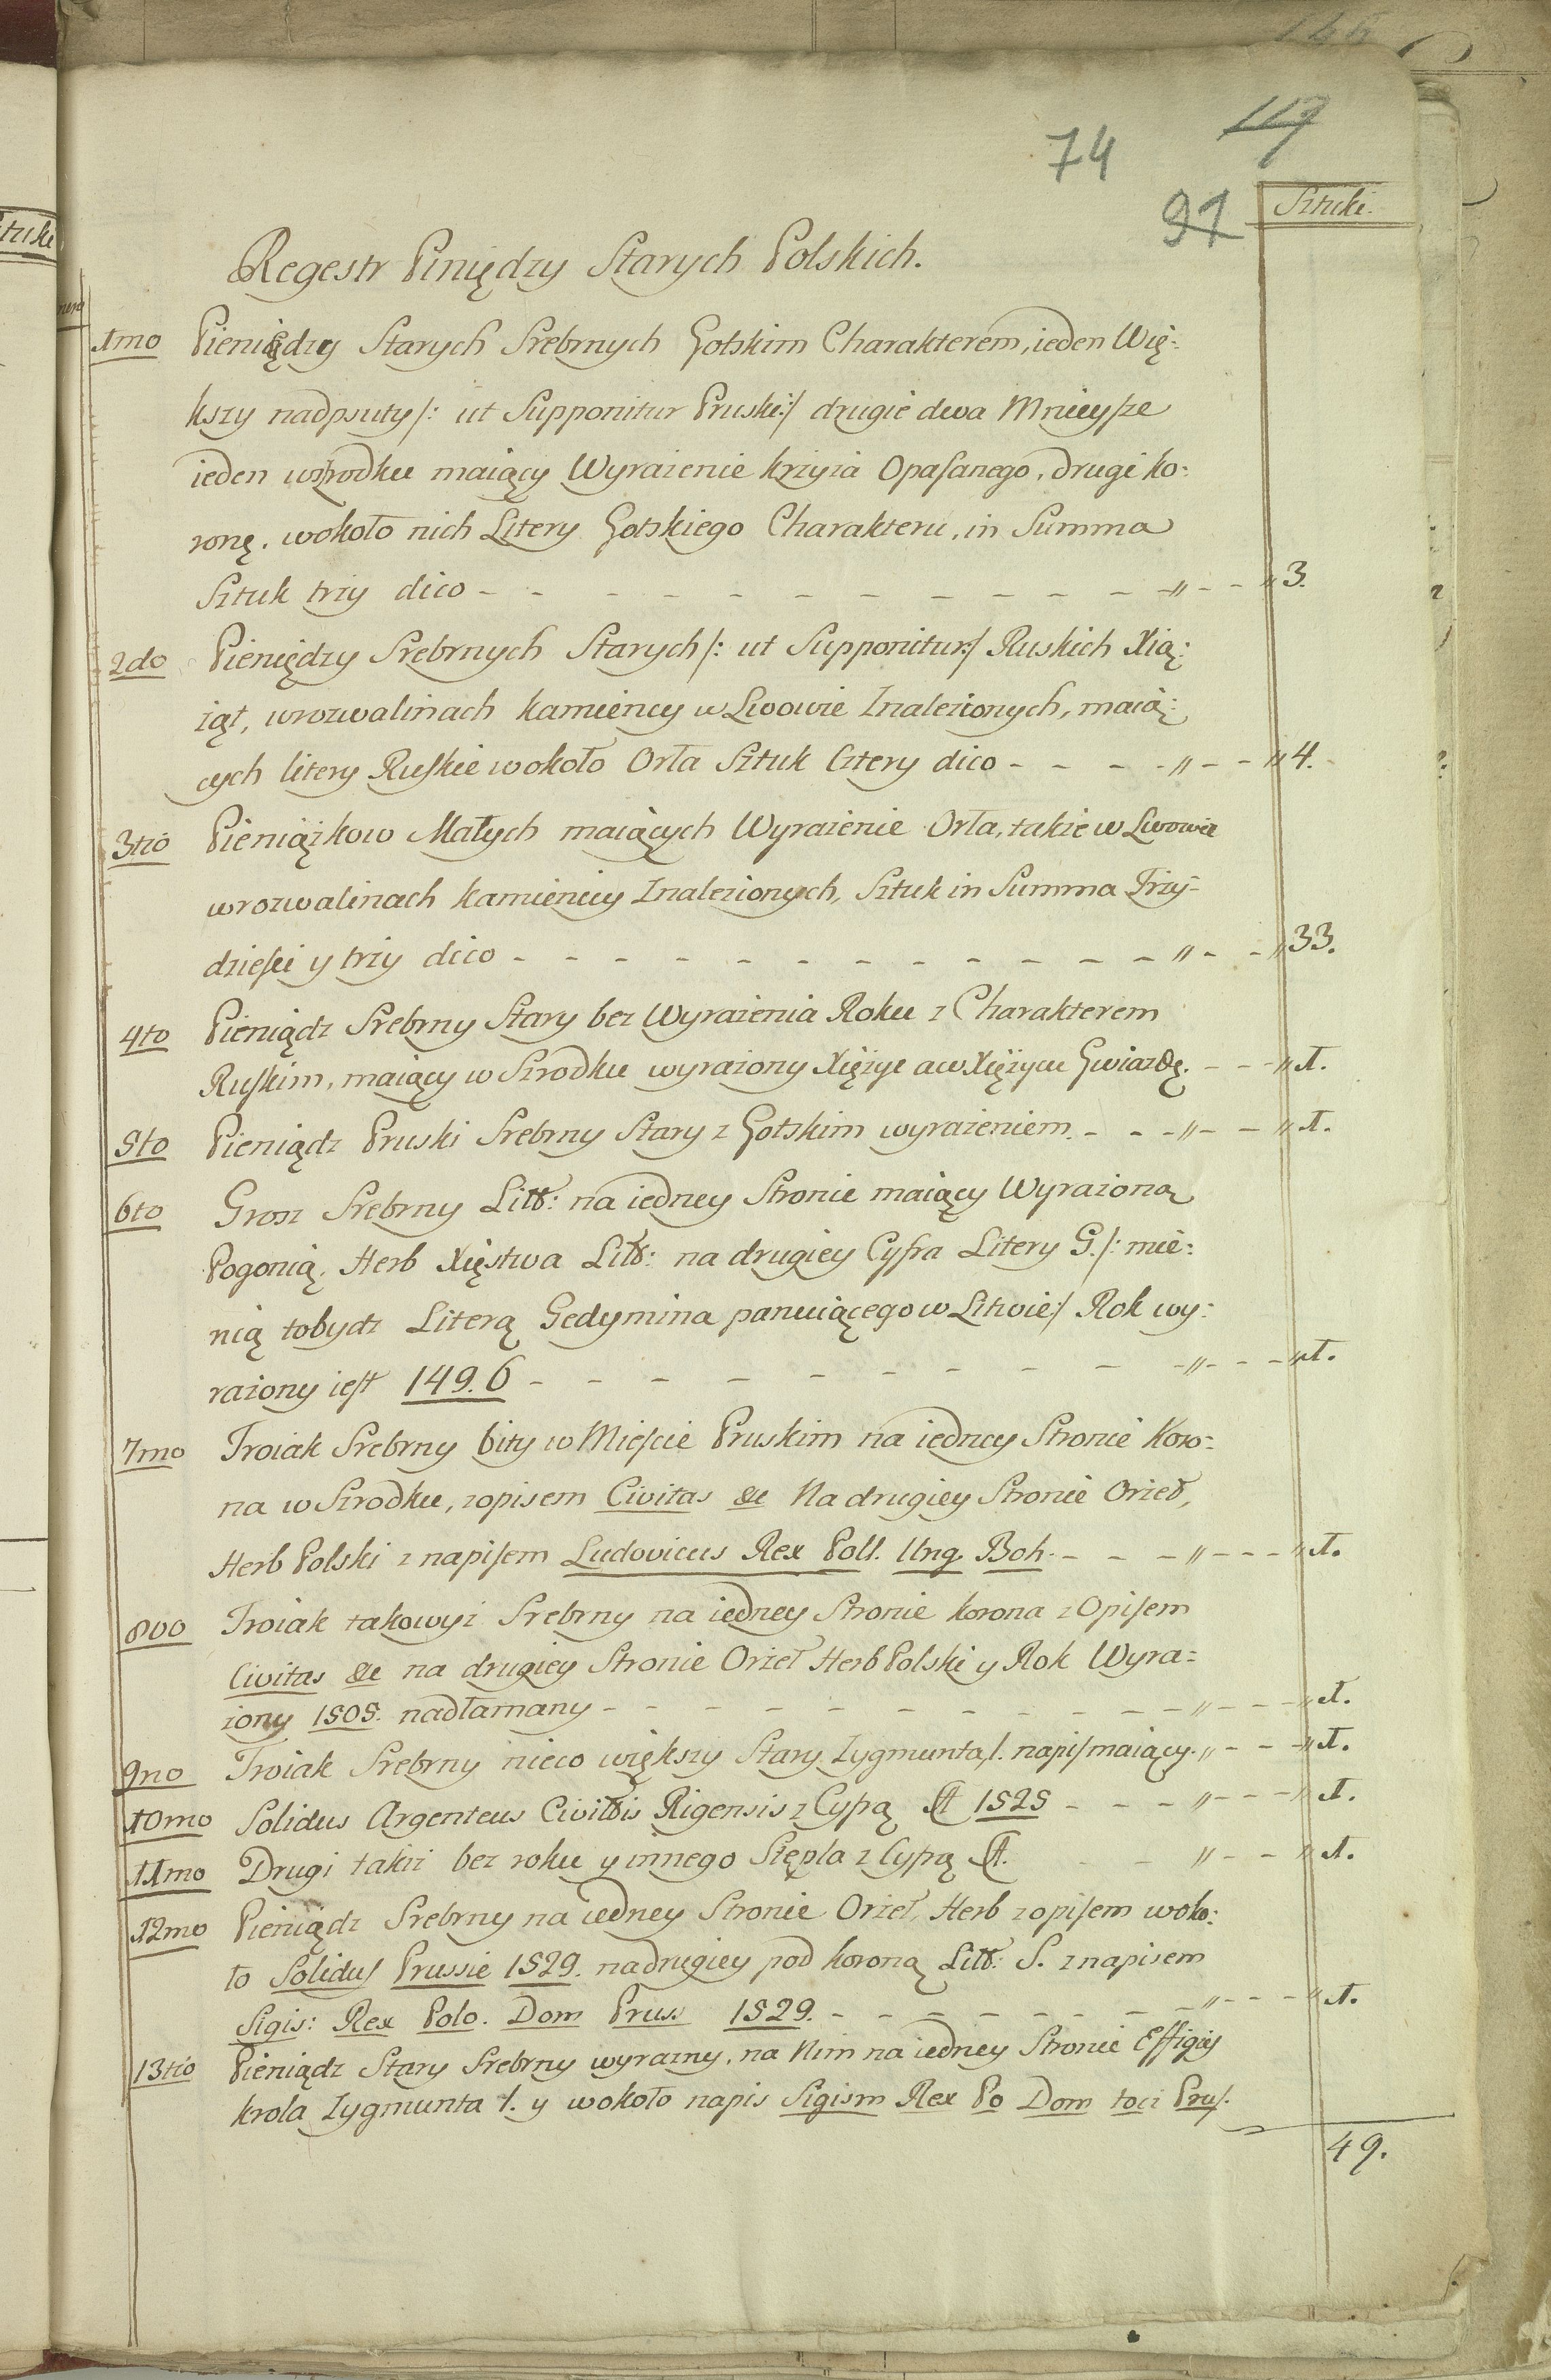 146
117
74
91
Sztuki.
Regestr Piniędzy Starych Polskich.
1mo Pieniędzy Starych Srebrnych Gotskim Charakterem, ieden Wię:
kszy nadpsuty /: ut Supponitur Pruski :/ drugie dwa Mnieysze
ieden wszrodku maiący Wyrażenie krzyża Opasanego, drugi ko:
ronę. wokoło nich Litery Gotskiego Charakteru, in Summa
Sztuk trzy dico - - - - - - - - - - - - „ - - „ 3.
2do Pieniędzy Srebrnych Starych /: ut Supponitur :/ Ruskich Xią:
żąt, wrozwalinach kamienicy w Lwowie Znalezionych, maią:
cych litery Ruskie wokoło Orła Sztuk Cztery dico - - - - „ - - „ 4.
3tio Pieniążkow Małych maiących Wyrażenie Orła, także w Lwowie
wrozwalinach kamienicy Znalezionych, Sztuk in Summa Trzy-
dzieści y trzy dico - - - - - - - - - - - „ - - „ 33.
4to Pieniądz Srebrny Stary bez Wyrażenia Roku z Charakterem
Ruskim, maiący w Szrodku wyrażony Xiężyc a w Xiężycu Gwiazdę. - - - „ 1.
5to Pieniądz Pruski Srebrny Stary z Gotskim wyrażeniem. - - - „ - - „ 1.
6to Grosz Srebrny Litt: na iedney Stronie maiący Wyrażoną
Pogonią, Herb Xięstwa Litt: na drugiey Cyfra Litery G. /: mie:
nią tobydz Literą Gedymina panuiącego w Litwie :/ Rok wy:
rażony iest 149.6 - - - - - - - - - „ - - - „ 1.
7mo Troiak Srebrny bity w Mieście Pruskim na iedney Stronie Koro:
na w Szrodku, z opisem Civitas &c Na drugiey Stronie Orzeł,
Herb Polski z napisem Ludovicus Rex Poll. Ung. Boh. - - - „ - - - „ 1.
8vo Troiak takowyż Srebrny na iedney Stronie korona z Opisem
Civitas &c na drugiey Stronie Orzeł Herb Polski y Rok Wyra:
żony 1505. nadłamany - - - - - - - - - „ - - - „ 1.
9no Troiak Srebrny nieco większy Stary Zygmunta I. napis maiący. „ - - - „ 1.
10mo Solidus Argenteus Civittis Rigensis z Cyfrą A 1525 - - - „ - - - „ 1.
11mo Drugi takiż bez roku y innego Stępla z Cyfrą A. - - „ - - „ 1.
12mo Pieniądz Srebrny na iedney Stronie Orzeł, Herb z opisem woko:
ło Solidus Prussie 1529. na drugiey pod koroną Litt: S. z napisem
Sigis: Rex Polo. Dom Prus. 1529. - - - - - - - „ - - - „ 1.
13tio Pieniądz Stary Srebrny wyrazny, na Nim na iedney Stronie Effigies
krola Zygmunta I. y wokoło napis Sigism Rex Po Dom toci Prus.
49.